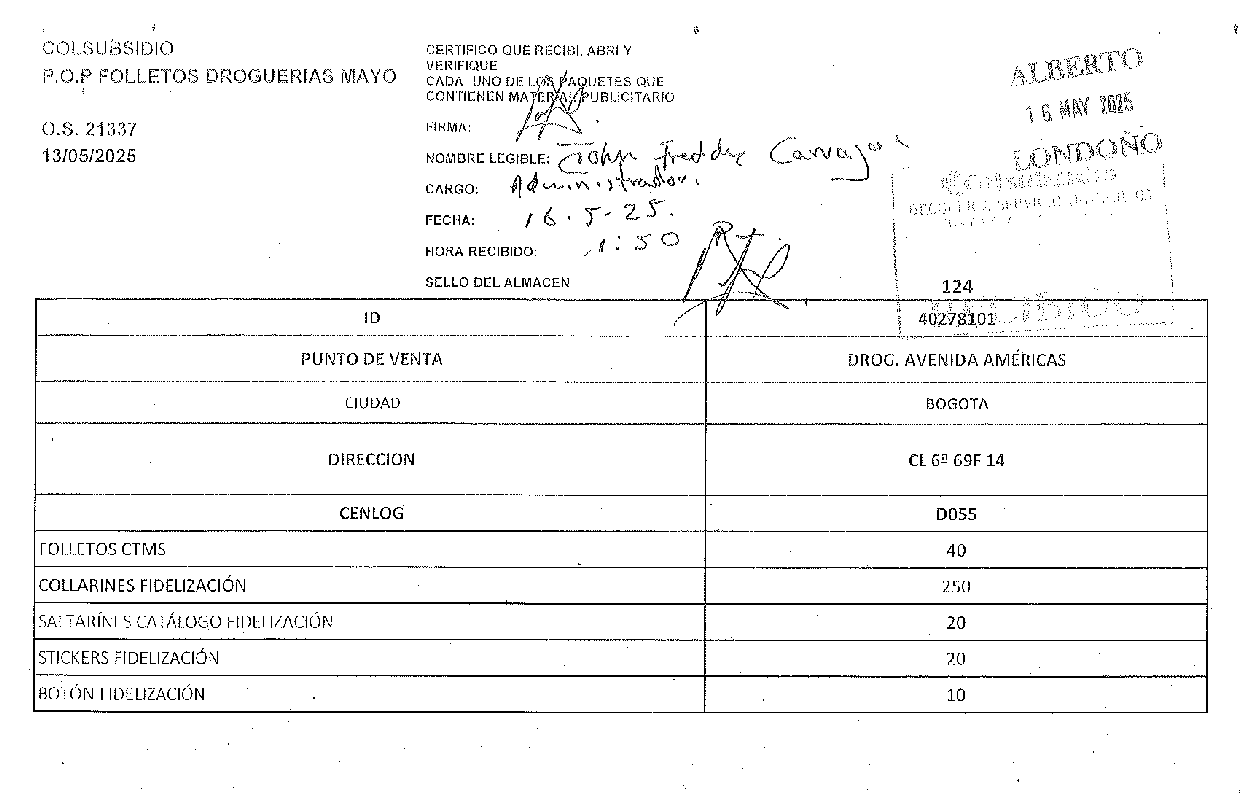 COLSUBSIDIO
P.O.P FOLLETOS DROGUERIAS MAYO
O.S. 21337
13/05/2025
CERTIFICO QUE RECIBI, ABRI Y
VERIFIQUE
CADA UNO DE LOS PAQUETES QUE
CONTIENEN MATERIAL PUBLICITARIO
FIRMA:
NOMBRE LEGIBLE: John Freddy Carvajal
CARGO: Administrador.
FECHA: 16.5-25.
HORA RECIBIDO: 1:50
SELLO DEL ALMACEN
ALBERTO
16 MAY 2025
LONDOÑO
Colsubsidio
RECIBIDO
124
ID 40278101
PUNTO DE VENTA DROG. AVENIDA AMÉRICAS
CIUDAD BOGOTA
DIRECCION CL 6ª 69F 14
CENLOG D055
FOLLETOS CTMS 40
COLLARINES FIDELIZACIÓN 250
SALTARÍNES CATÁLOGO FIDELIZACIÓN 20
STICKERS FIDELIZACIÓN 20
BOTÓN FIDELIZACIÓN 10